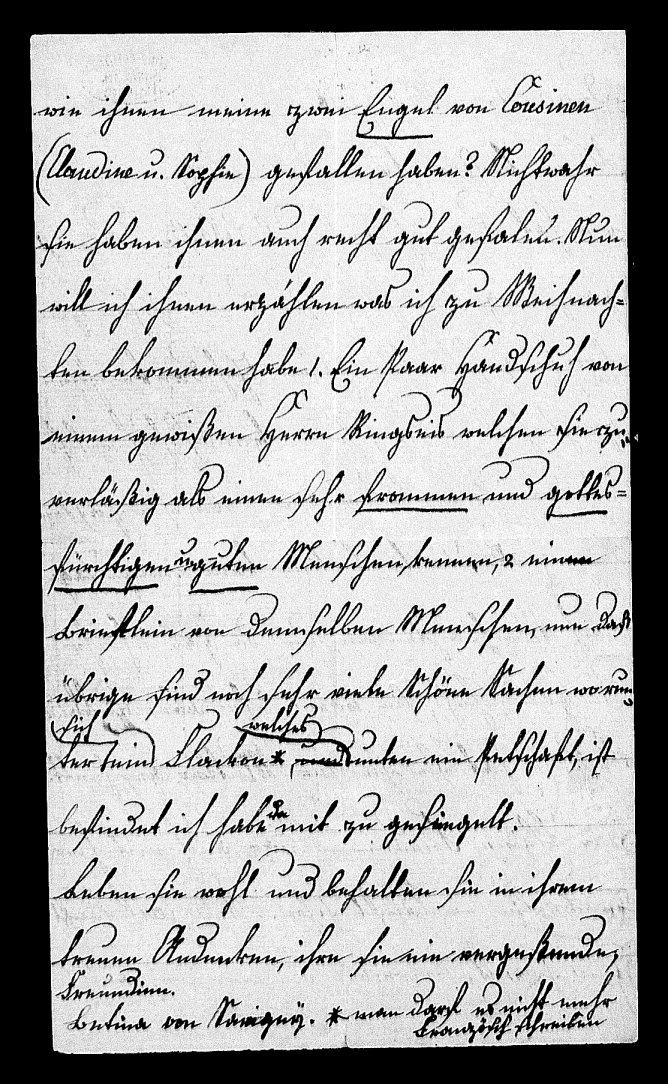 wie ihnen meine zwei Engel von Cousinen
(Claudine u. Sophie) gefallen haben? Nichtwahr
sie haben ihnen auch recht gut gefalen. Nun
will ich ihnen erzählen was ich zu Weihnach=
ten bekommen habe 1. Ein Paar Handschuh von
einem gewißen Herrn Ringseis welchen sie zu=
verläßig als einen sehr frommen und gottes=
fürchtigen u. guten Menschen kennen, 2 einen
Brieflein von demselben Menschen, nun das
übrige sind noch sehr viele Schöne Sachen worun=
sich welches
ter ein Flackon *, und unten ein Petschaft, ist
befindet ich habe da mit zu gesiegelt.
Leben sie wohl und behalten sie in ihrem
treuen Andenken, ihre sie nie vergeßende,
Freundinn.
Betina von Savigny. * man darf es nicht mehr
Französch schreiben